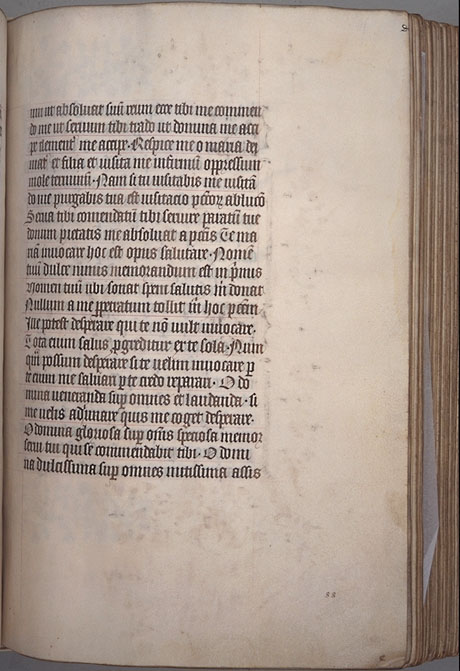 um ut absoluat suū reum ecce tibi me commen
do me ut seruum tibi trado ut domina me acci
pe clement' me accipe · Respice me o maria dei
mat' et filia et uisita me infirmū oppressum
mole terminū · Nam si tu uisitabis me uisitā
do me purgabis tua est uisitacio pctōꝝ ablucō
Serua tibi comendatū tibi seruire paratū tue
donum pietatis me absoluat a pctīs Te ma
riā inuocare hoc est opus salutare · Nomē
tuū dulce nimis memorandum est in p'mis
Nomen tuū ubi sonat spem salutis in donat
Nullum a me peccatum tollit in hoc
Ille potest desperare qui te nō uult inuocare ·
Tota enim salus ꝓgreditur ex te sola · Num
qūi possum desperare si te uelim inuocare p
te enim me saluari p te credo reparari · O do
mina ueneranda sup omnes et laudanda · si
me uelis adiuuare quis me coget desperare ·
O domina gloriosa sup om̄s speciosa memor
seui tui qui se commendabit tibi · O domi
na dulcissima sup omnes mitissima assis
88